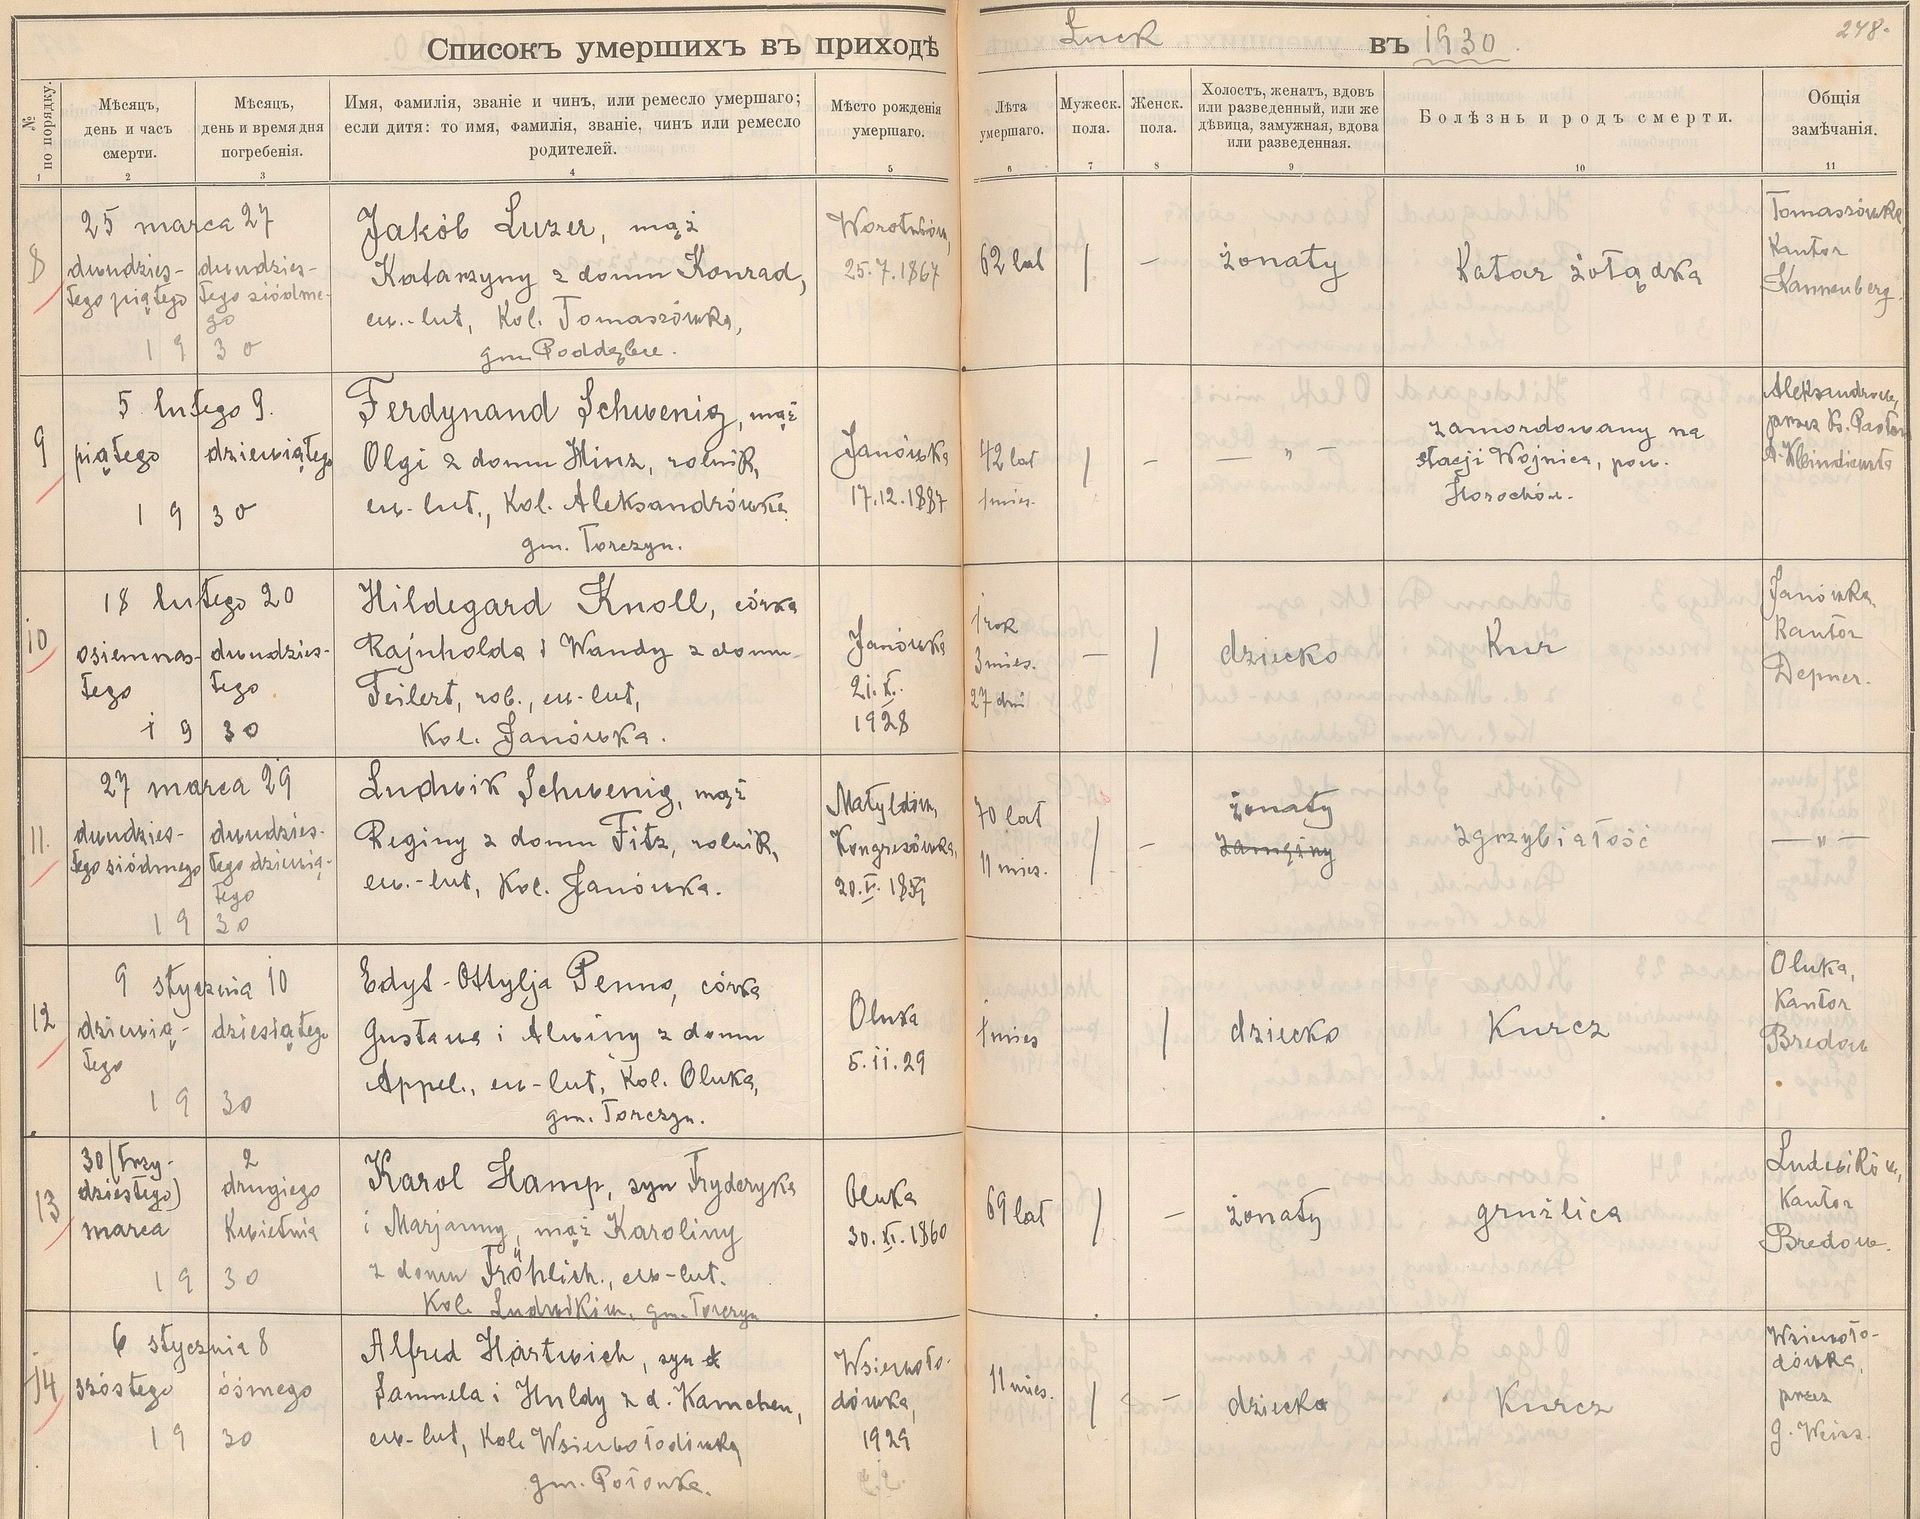 Списокъ умершихъ въ приходѣ Luck въ 1930.
248.
№ по порядку.
Мѣсяцъ,
день и часъ
смерти.
Мѣсяцъ,
день и время дня
погребенія.
Имя, фамилія, званіе и чинъ, или ремесло умершаго;
если дитя: то имя, фамилія, званіе, чинъ или ремесло
родителей.
Мѣсто рожденія
умершаго.
Лѣта
умершаго.
Мужеск.
пола.
Женск.
пола.
Холостъ, женатъ, вдовъ
или разведенный, или же
дѣвица, замужная, вдова
или разведенная.
Болѣзнь и родъ смерти.
Общія
замѣчанія.
1 2 3 4 5 6 7 8 9 10 11
8
25 marca 27
dwudzies-
tego piątego
dwudzies-
tego siódme-
go
1930
Jakób Luzer, mąż
Katarzyny z domu Konrad,
ew.-lut, Kol. Tomaszówka,
gm. Poddębce.
25.7.1867
62 lat
/
—
żonaty
Katar żołądka
Tomaszówka,
Kantor
Kannenberg
9
5 lutego 9.
piątego
dziewiątego
1930
Ferdynand Schwenig, mąż
Olgi z domu Hinz, rolnik,
ew-lut., Kol. Aleksandrówka
gm. Torczyn.
Janówka
17.12.1887
42 lat
1 mies.
/
—
— „ —
zamordowany na
stacji Wojnica, pow.
Horochów.
Aleksandrow,
przez Ks. Pastor
A. Kleindiensta
10
18 lutego 20
osiemnas-
tego
dwudzies-
tego
1930
Hildegard Knoll, córka
Rajnholda i Wandy z domu
Feilert, rob., ew-lut,
Kol. Janówka.
Janówka
21. X.
1928
1 rok
3 mies.
27 dni
—
/
dziecko
Kur
Janówka
Kantor
Depner.
11.
27 marca 29
dwudzies-
tego siódmego
dwudzies-
tego dziewią-
tego
1930
Ludwik Schwenig, mąż
Reginy z domu Fitz, rolnik,
ew.-lut, Kol. Janówka.
Matyldów,
Kongresówka,
20. IV. 1859
70 lat
11 mies.
/
—
żonaty
zamężny
zgrzybiałość
— „ —
12
9 stycznia 10
dziewią-
tego
dziesiątego
1930
Edyt-Ottylja Penno, córka
Gustawa i Alwiny z domu
Appel., ew-lut, Kol. Ołyka,
gm. Torczyn.
Ołyka
5.11.29
1 mies
/
dziecko
Kurcz
Ołyka,
Kantor
Bredow
13
30 (trzy-
dziestego)
marca
2
drugiego
Kwietnia
1930
Karol Hamp, syn Fryderyka
i Marjanny, mąż Karoliny
z domu Fröhlich., ew-lut.
Kol. Ludwików, gm. Torczyn
Ołyka
30. XI. 1860
69 lat
/
—
żonaty
gruźlica
Ludwików,
Kantor
Bredow.
14
6 stycznia 8
szóstego
ósmego
1930
Alfred Hartwich, syn
Samuela i Huldy z d. Kamchen,
ew-lut, Kol. Wsiewołodówka
gm. Połonka.
Wsiewoło-
dówka,
1929
11 mies.
/
—
dziecko
Kurcz
Wsiewoło-
dówka,
przez
G. Weiss.